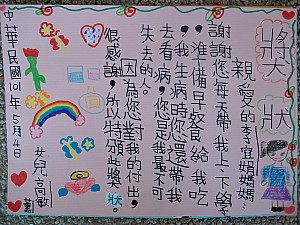 獎狀
親愛的李宜娟媽媽：
謝謝您每天帶我上下學
，準備早餐給我吃
，我生病時您還帶我
去看病，您是我最不可
失去的人。
因為您對我的付出，
很感謝，所以特頒此獎狀。
兒高敏
中華民國101年5月4日